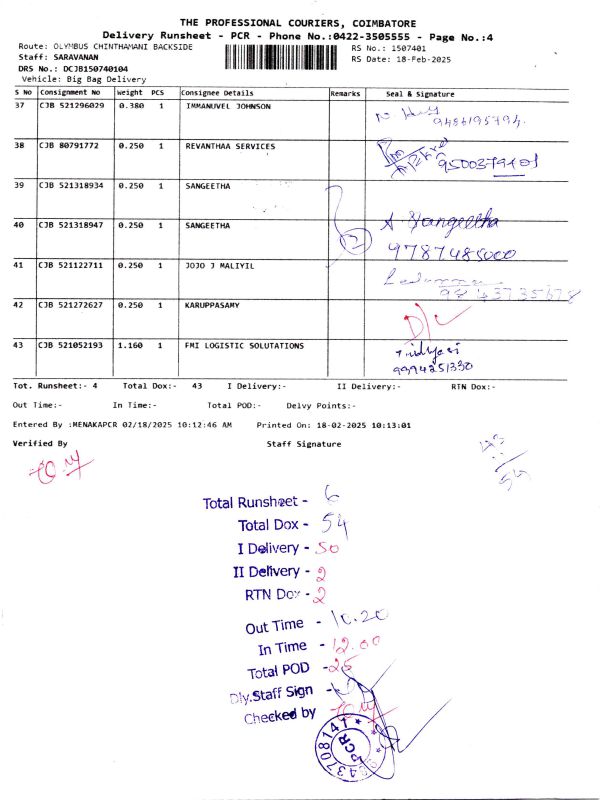 THE PROFESSIONAL COURIERS, COIMBATORE
Delivery Runsheet - PCR - Phone No.:0422-3505555 - Page No.:4
Route: OLYMBUS CHINTHAMANI BACKSIDE RS No.: 1507401
Staff: SARAVANAN RS Date: 18-Feb-2025
DRS No.: DCJB150740104
Vehicle: Big Bag Delivery
S No Consignment No Weight PCS Consignee Details Remarks Seal & Signature
37 CJB 521296029 0.380 1 IMMANUVEL JOHNSON
9486195794.
38 CJB 80791772 0.250 1 REVANTHAA SERVICES
9500379401
39 CJB 521318934 0.250 1 SANGEETHA
40 CJB 521318947 0.250 1 SANGEETHA 2 A Sangeetha
9787485000
41 CJB 521122711 0.250 1 JOJO J MALIYIL
9843735678
42 CJB 521272627 0.250 1 KARUPPASAMY D/L
43 CJB 521052193 1.160 1 FMI LOGISTIC SOLUTATIONS
9994251330
Tot. Runsheet:- 4 Total Dox:- 43 I Delivery:- II Delivery:- RTN Dox:-
Out Time:- In Time:- Total POD:- Delvy Points:-
Entered By :MENAKAPCR 02/18/2025 10:12:46 AM Printed On: 18-02-2025 10:13:01
Verified By Staff Signature
54
Total Runsheet - 6
Total Dox - 54
I Delivery - 50
II Delivery - 2
RTN Dox - 2
Out Time - 10.20
In Time - 12.00
Total POD - 25
Dly.Staff Sign -
Checked by -
PCR